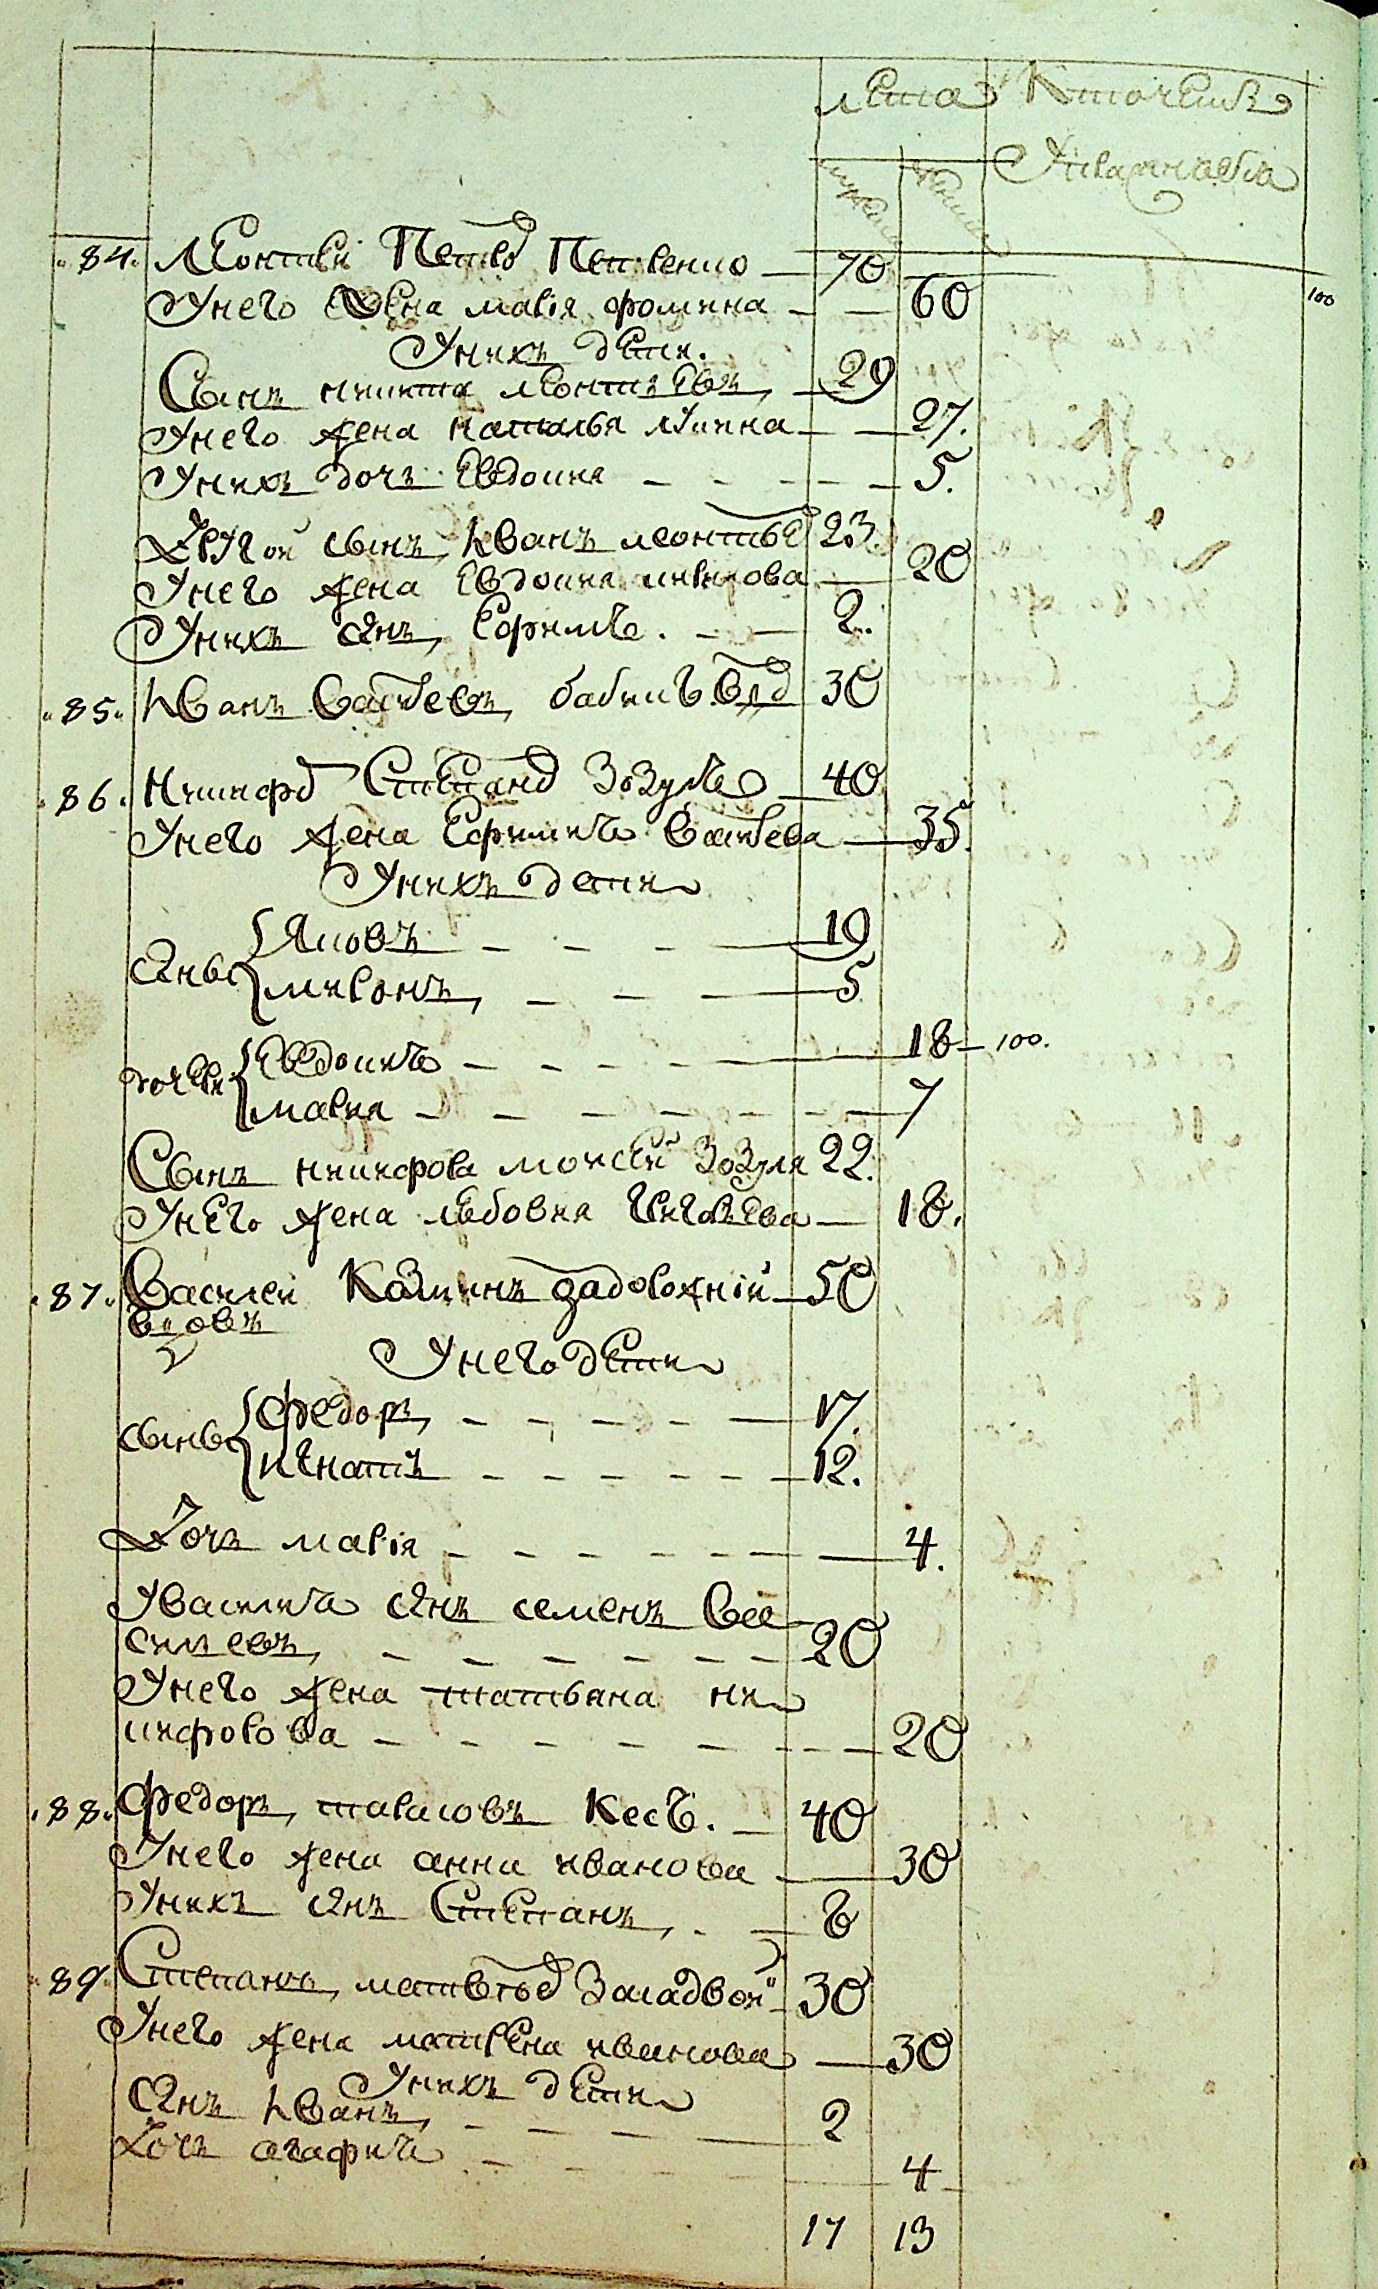 лета
мужеска женска
84. Леонтей Петровъ Петренко — 70
У него жена Марія Фомина — 60
У нихъ дети.
Сынъ Никита Леонтьевъ, — 29
У него жена Наталья Лукина — 27.
У нихъ дочь Евдокия — 5.
Другой сынъ, Иванъ Леонтьевъ 23.
У него жена Евдокия — 20
У нихъ сынъ, Ефримъ. — 2.
85. Иванъ 30
86. Никифоръ Степановъ Зозуля — 40
У него жена Ефимия — 35.
У нихъ дети
сыны { Яковъ — 19
Миронъ, — 5
дочери { Евдокия — 18 — 100.
Мария — 7
Сынъ Никифора Моисей Зозуля 22.
У него жена Григорьева — 18.
87. Василей Козминъ Задорожній — 50
вдовъ
У него дети
сыны { Федоръ, — 17.
Игнатъ — 12.
Дочь Марія — 4.
У Василия сынъ Семенъ Ва
сильевъ, — 20
У него жена Татьяна Ни
кифорова — 20
88. Федоръ, Тарасовъ — 40
У него жена Анна Иванова — 30
У нихъ сынъ Степанъ, — 8
89. Степанъ, Матвеевъ 30
У него жена Матрена Иванова — 30
У нихъ дети
Сынъ Иванъ, — 2
Дочь Агафия — 4
17 13
100